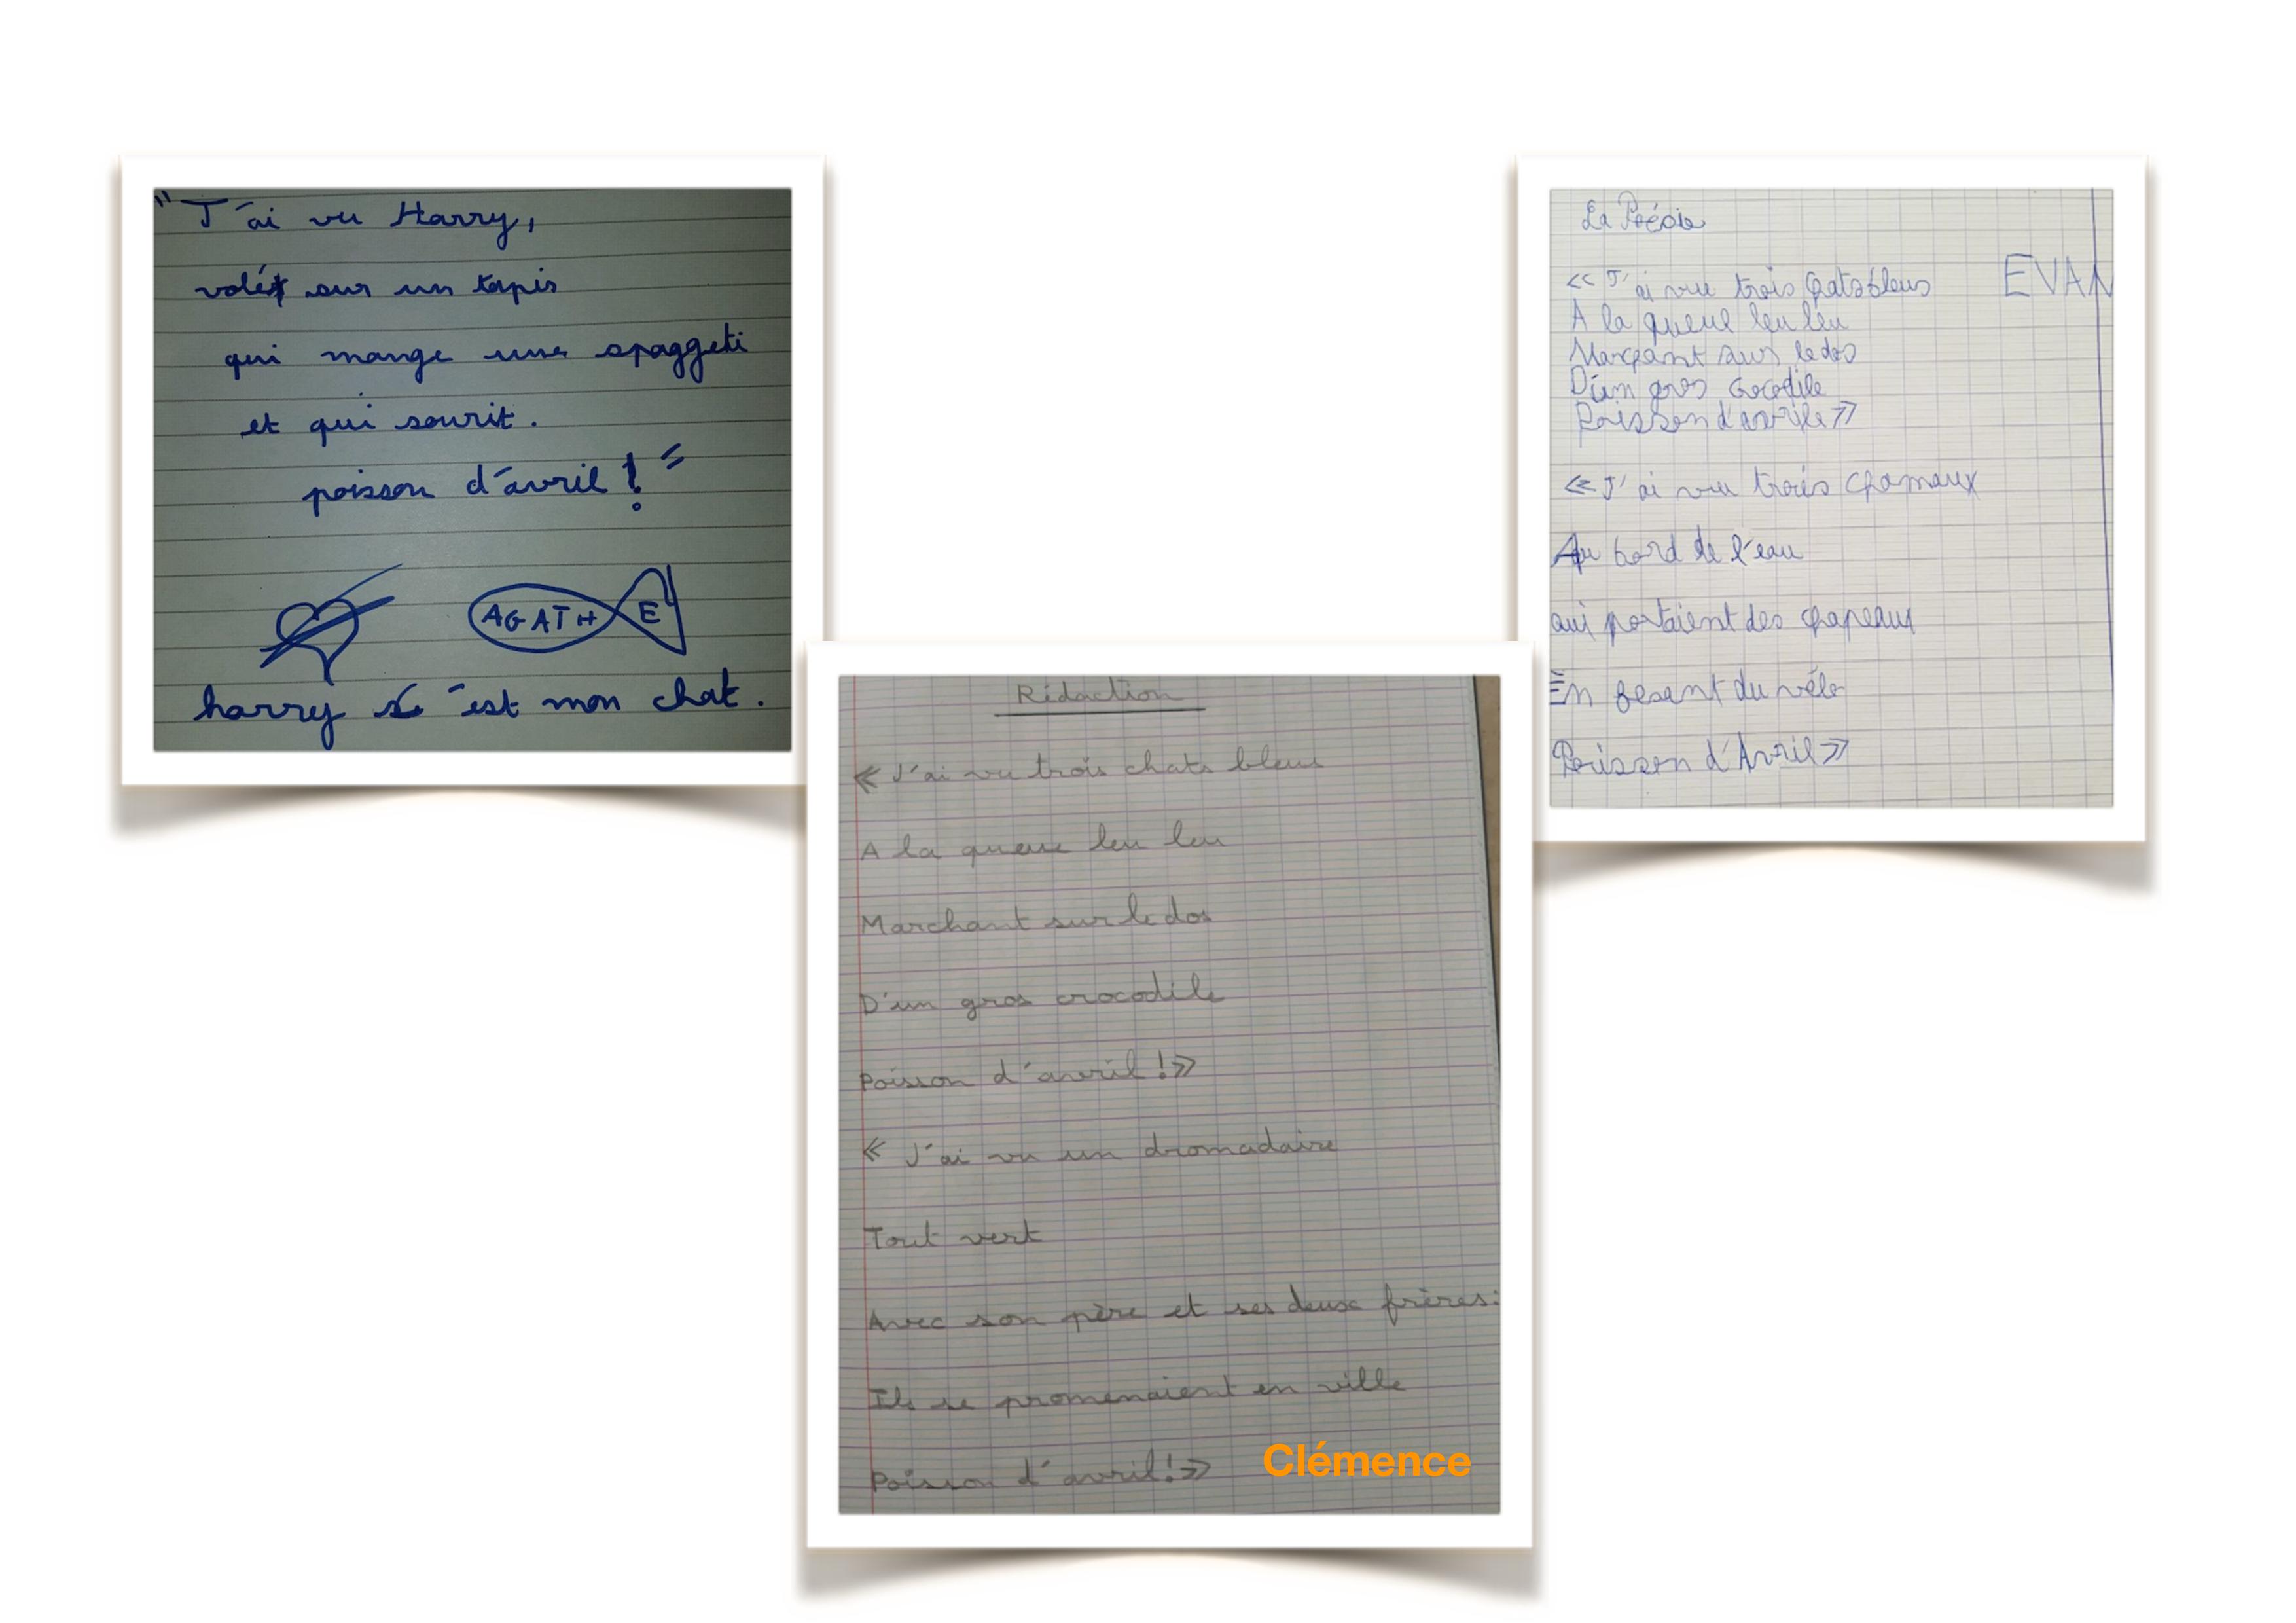 "J'ai vu Harry,
volé sur un tapis
qui mange une spaggeti
et qui sourit.
poisson d'avril ! "
AGATHE
harry c'est mon chat.
La Poésie
EVAN
<< J'ai vu trois chats bleus
A la queue leu leu
Marchant sur le dos
D'un gros crocodile
Poisson d'avrile >>
<< J'ai vu trois chamaux
Au bord de l'eau
qui portaient des chapeaux
En fesant du vélo
Poisson d'Avril >>
Rédaction
« J'ai vu trois chats bleus
A la queue leu leu
Marchant sur le dos
D'un gros crocodile
Poisson d'avril ! »
« J'ai vu un dromadaire
Tout vert
Avec son père et ses deux frères:
Ils se promenaient en ville
Poisson d'avril ! »
Clémence